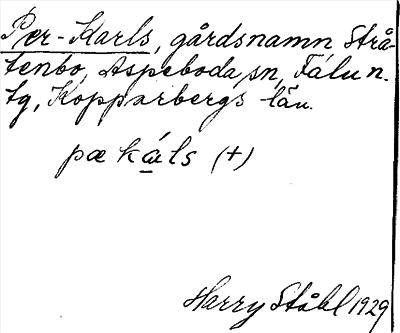 Per-Karls, gårdsnamn Strå-
tenbo, Aspeboda sn, Falu n.
tg, Kopparbergs län.
pæ káls (+)
Harry Ståhl 1929